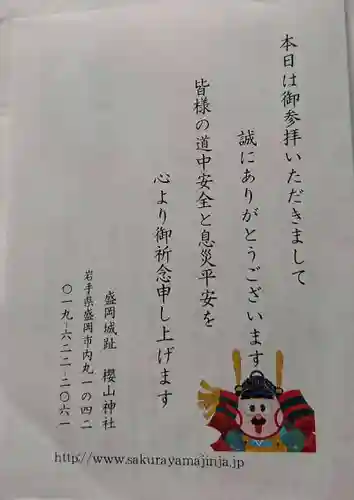 本日は御参拝いただきまして
誠にありがとうございます
皆様の道中安全と息災平安を
心より御祈念申し上げます
盛岡城趾 櫻山神社
岩手県盛岡市内丸一の四二
〇一九-六二二-二〇六一
http://www.sakurayamajinja.jp